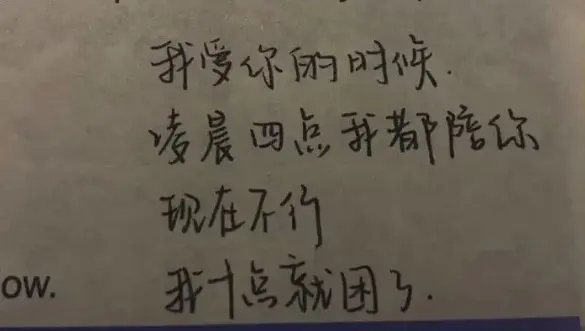 我爱你的时候.
凌晨四点我都陪你
现在不行
ow.
我十点就困了.